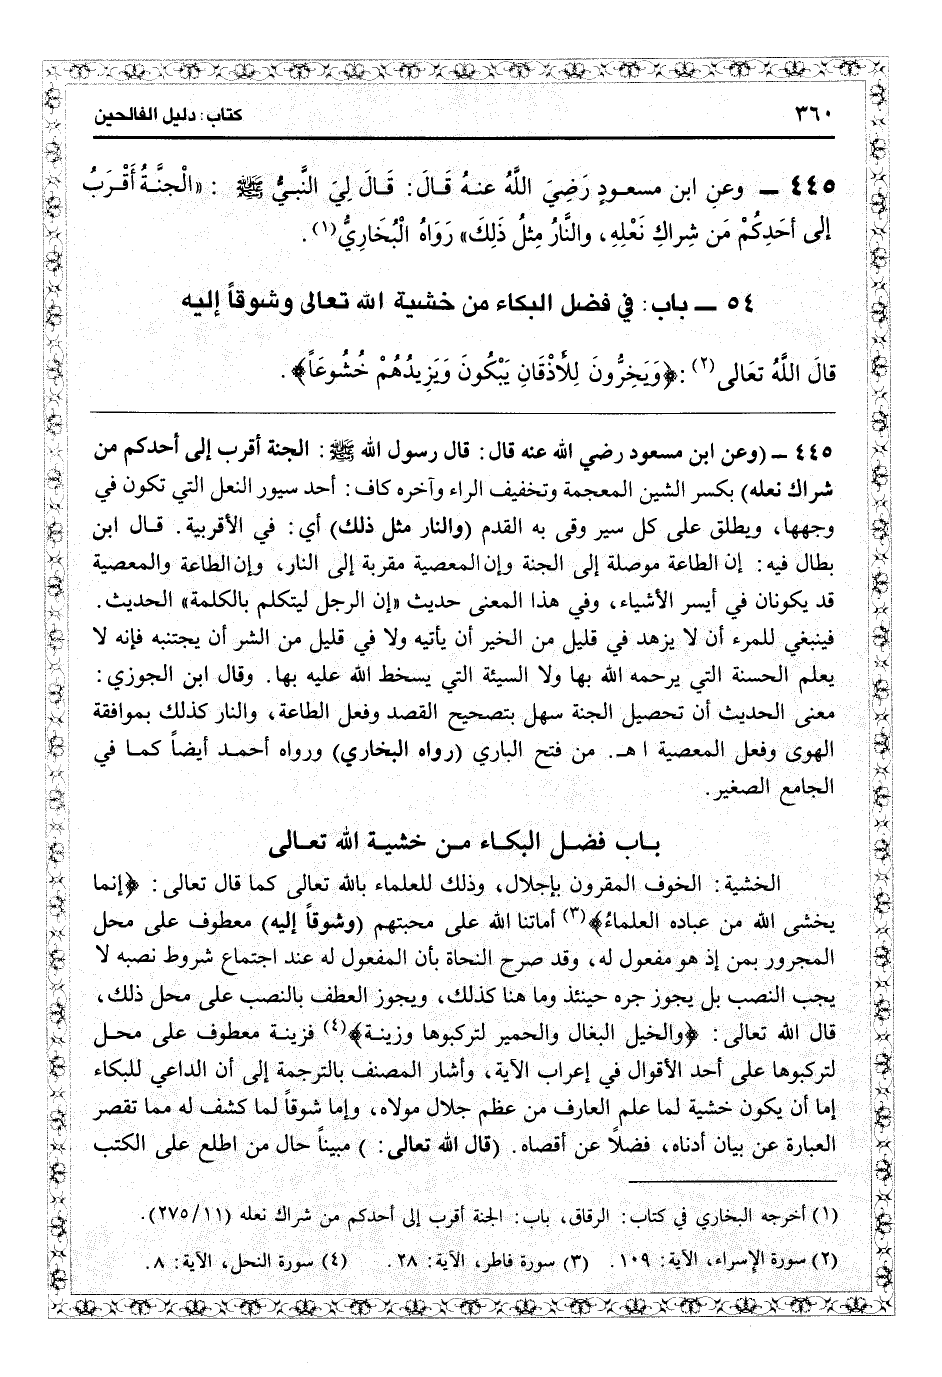 ٣٦٠ كتاب: دليل الفالحين
٤٤٥ ــ وعنِ ابن مسعودٍ رَضِيَ اللَّهُ عنهُ قَالَ: قَالَ لِيَ النَّبيُّ ﷺ : «الْجنَّةُ أَقْرَبُ
إلى أحَدِكُمْ مَن شِراكِ نَعْلِهِ، والنَّارُ مِثلُ ذَلِكَ» رَوَاهُ الْبُخَارِيُّ(١).
٥٤ ــ باب: في فضل البكاء من خشية الله تعالى وشوقاً إليه
قالَ اللَّهُ تعَالى(٢) : ﴿وَيَخِرُّونَ لِلأذْقَانِ يَبْكُونَ وَيَزِيدُهُمْ خُشُوعَاً﴾.
٤٤٥ ــ (وعن ابن مسعود رضي الله عنه قال: قال رسول الله ﷺ: الجنة أقرب إلى أحدكم من
شراك نعله) بكسر الشين المعجمة وتخفيف الراء وآخره كاف: أحد سيور النعل التي تكون في
وجهها، ويطلق على كل سير وقى به القدم (والنار مثل ذلك) أي: في الأقربية. قال ابن
بطال فيه: إن الطاعة موصلة إلى الجنة وإن المعصية مقربة إلى النار، وإن الطاعة والمعصية
قد يكونان في أيسر الأشياء، وفي هذا المعنى حديث «إن الرجل ليتكلم بالكلمة» الحديث.
فينبغي للمرء أن لا يزهد في قليل من الخير أن يأتيه ولا في قليل من الشر أن يجتنبه فإنه لا
يعلم الحسنة التي يرحمه الله بها ولا السيئة التي يسخط الله عليه بها. وقال ابن الجوزي:
معنى الحديث أن تحصيل الجنة سهل بتصحيح القصد وفعل الطاعة، والنار كذلك بموافقة
الهوى وفعل المعصية اهـ. من فتح الباري (رواه البخاري) ورواه أحمد أيضاً كما في
الجامع الصغير.
باب فضل البكاء من خشية الله تعالى
الخشية: الخوف المقرون بإجلال، وذلك للعلماء بالله تعالى كما قال تعالى: ﴿إنما
يخشى الله من عباده العلماءُ﴾(٣) أماتنا الله على محبتهم (وشوقاً إليه) معطوف على محل
المجرور بمن إذ هو مفعول له، وقد صرح النحاة بأن المفعول له عند اجتماع شروط نصبه لا
يجب النصب بل يجوز جره حينئذ وما هنا كذلك، ويجوز العطف بالنصب على محل ذلك،
قال الله تعالى: ﴿والخيل البغال والحمير لتركبوها وزينة﴾(٤) فزينة معطوف على محل
لتركبوها على أحد الأقوال في إعراب الآية، وأشار المصنف بالترجمة إلى أن الداعي للبكاء
إما أن يكون خشية لما علم العارف من عظم جلال مولاه، وإما شوقاً لما كشف له مما تقصر
العبارة عن بيان أدناه، فضلاً عن أقصاه. (قال الله تعالى: ) مبيناً حال من اطلع على الكتب
(١) أخرجه البخاري في كتاب: الرقاق، باب: الجنة أقرب إلى أحدكم من شراك نعله (٢٧٥/١١).
(٢) سورة الإسراء، الآية: ١٠٩. (٣) سورة فاطر، الآية: ٢٨. (٤) سورة النحل، الآية: ٨.